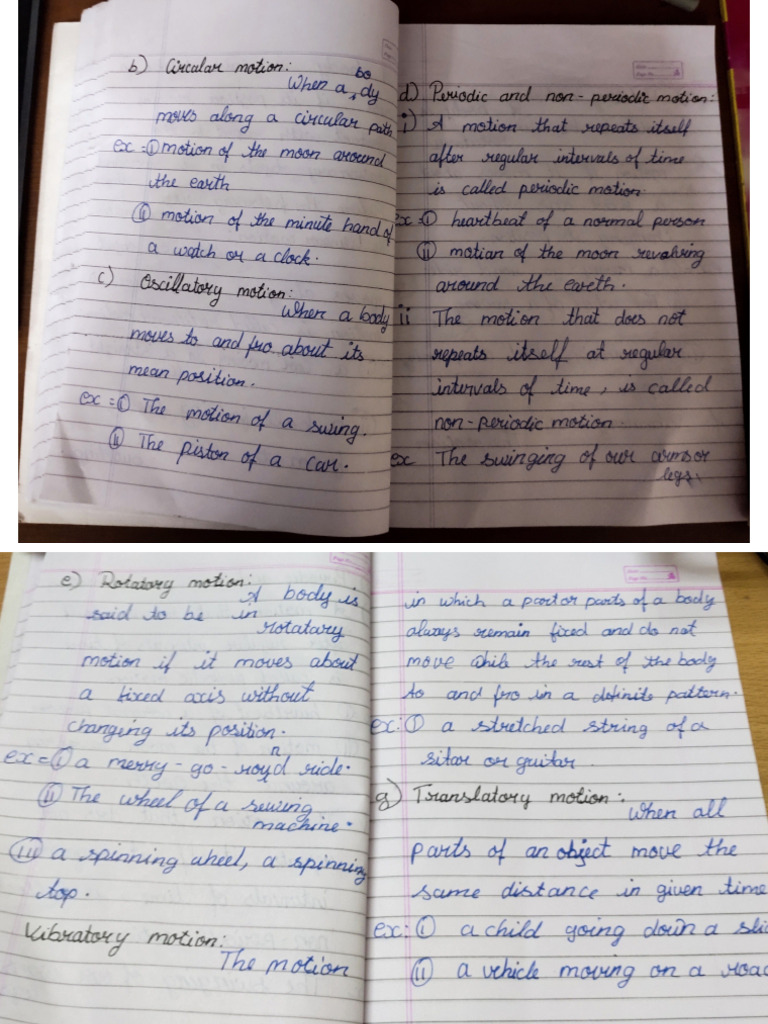 b) Circular motion:
bo
When a dy
moves along a circular path
ex = i motion of the moon around
the earth
ii motion of the minute hand of
a watch or a clock.
c) Oscillatory motion:
When a body
moves to and fro about its
mean position.
ex = i The motion of a swing.
ii The piston of a car.
d) Periodic and non-periodic motion:
i) A motion that repeats itself
after regular intervals of time
is called periodic motion
ex = i heartbeat of a normal person
ii motion of the moon revolving
around the earth.
ii The motion that does not
repeats itself at regular
intervals of time, is called
non-periodic motion.
ex The swinging of our arms or
legs.
e) Rotatory motion:
A body is
said to be in
rotatary
motion if it moves about
a fixed axis without
changing its position.
n
ex = i a merry-go-roud ride.
ii The wheel of a sewing
machine.
iii a spinning wheel, a spinning
top.
Vibratory motion:
The motion
in which a part or parts of a body
always remain fixed and do not
move while the rest of the body
to and fro in a definite pattern.
ex: i a stretched string of a
sitar or guitar.
g) Translatory motion:
When all
parts of an object move the
same distance in given time
ex: i a child going down a sli
ii a vehicle moving on a road